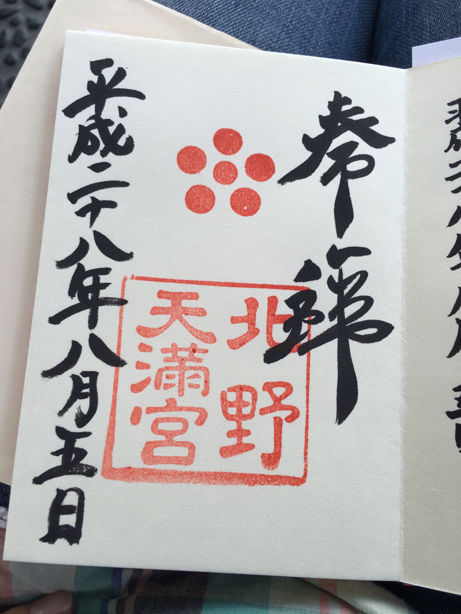 奉拝
北野
天満宮
平成二十八年八月五日